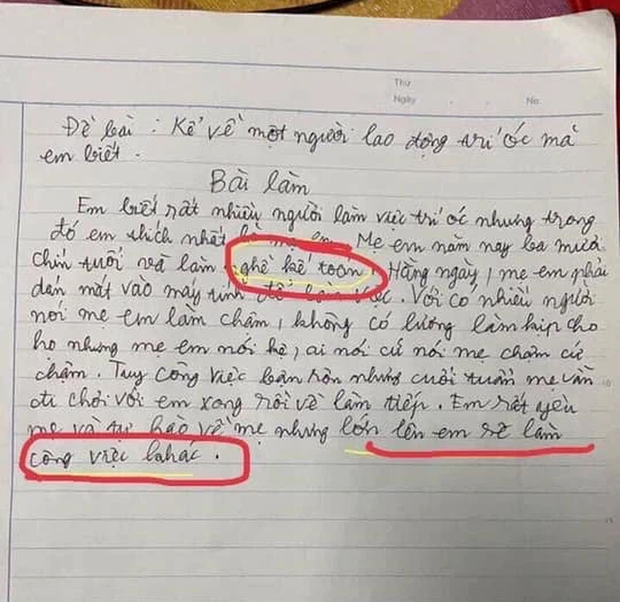 Thứ
Ngày . . No.
Đề bài : Kể về một người lao động trí óc mà
em biết .
Bài làm
Em biết rất nhiều người làm việc trí óc nhưng trong
đó em thích nhất là mẹ em. Mẹ em năm nay ba mươi
chín tuổi và làm nghề kế toán. Hằng ngày, mẹ em phải
dán mắt vào máy tính để làm việc. Với có nhiều người
nói mẹ em làm chậm, không có lương làm kịp cho
họ nhưng mẹ em nói kệ, ai nói cứ nói mẹ chậm cứ
chậm. Tuy công việc bận rộn nhưng cuối tuần mẹ vẫn
đi chơi với em xong rồi về làm tiếp. Em rất yêu
mẹ và tự hào về mẹ nhưng lớn lên em sẽ làm
công việc khác .